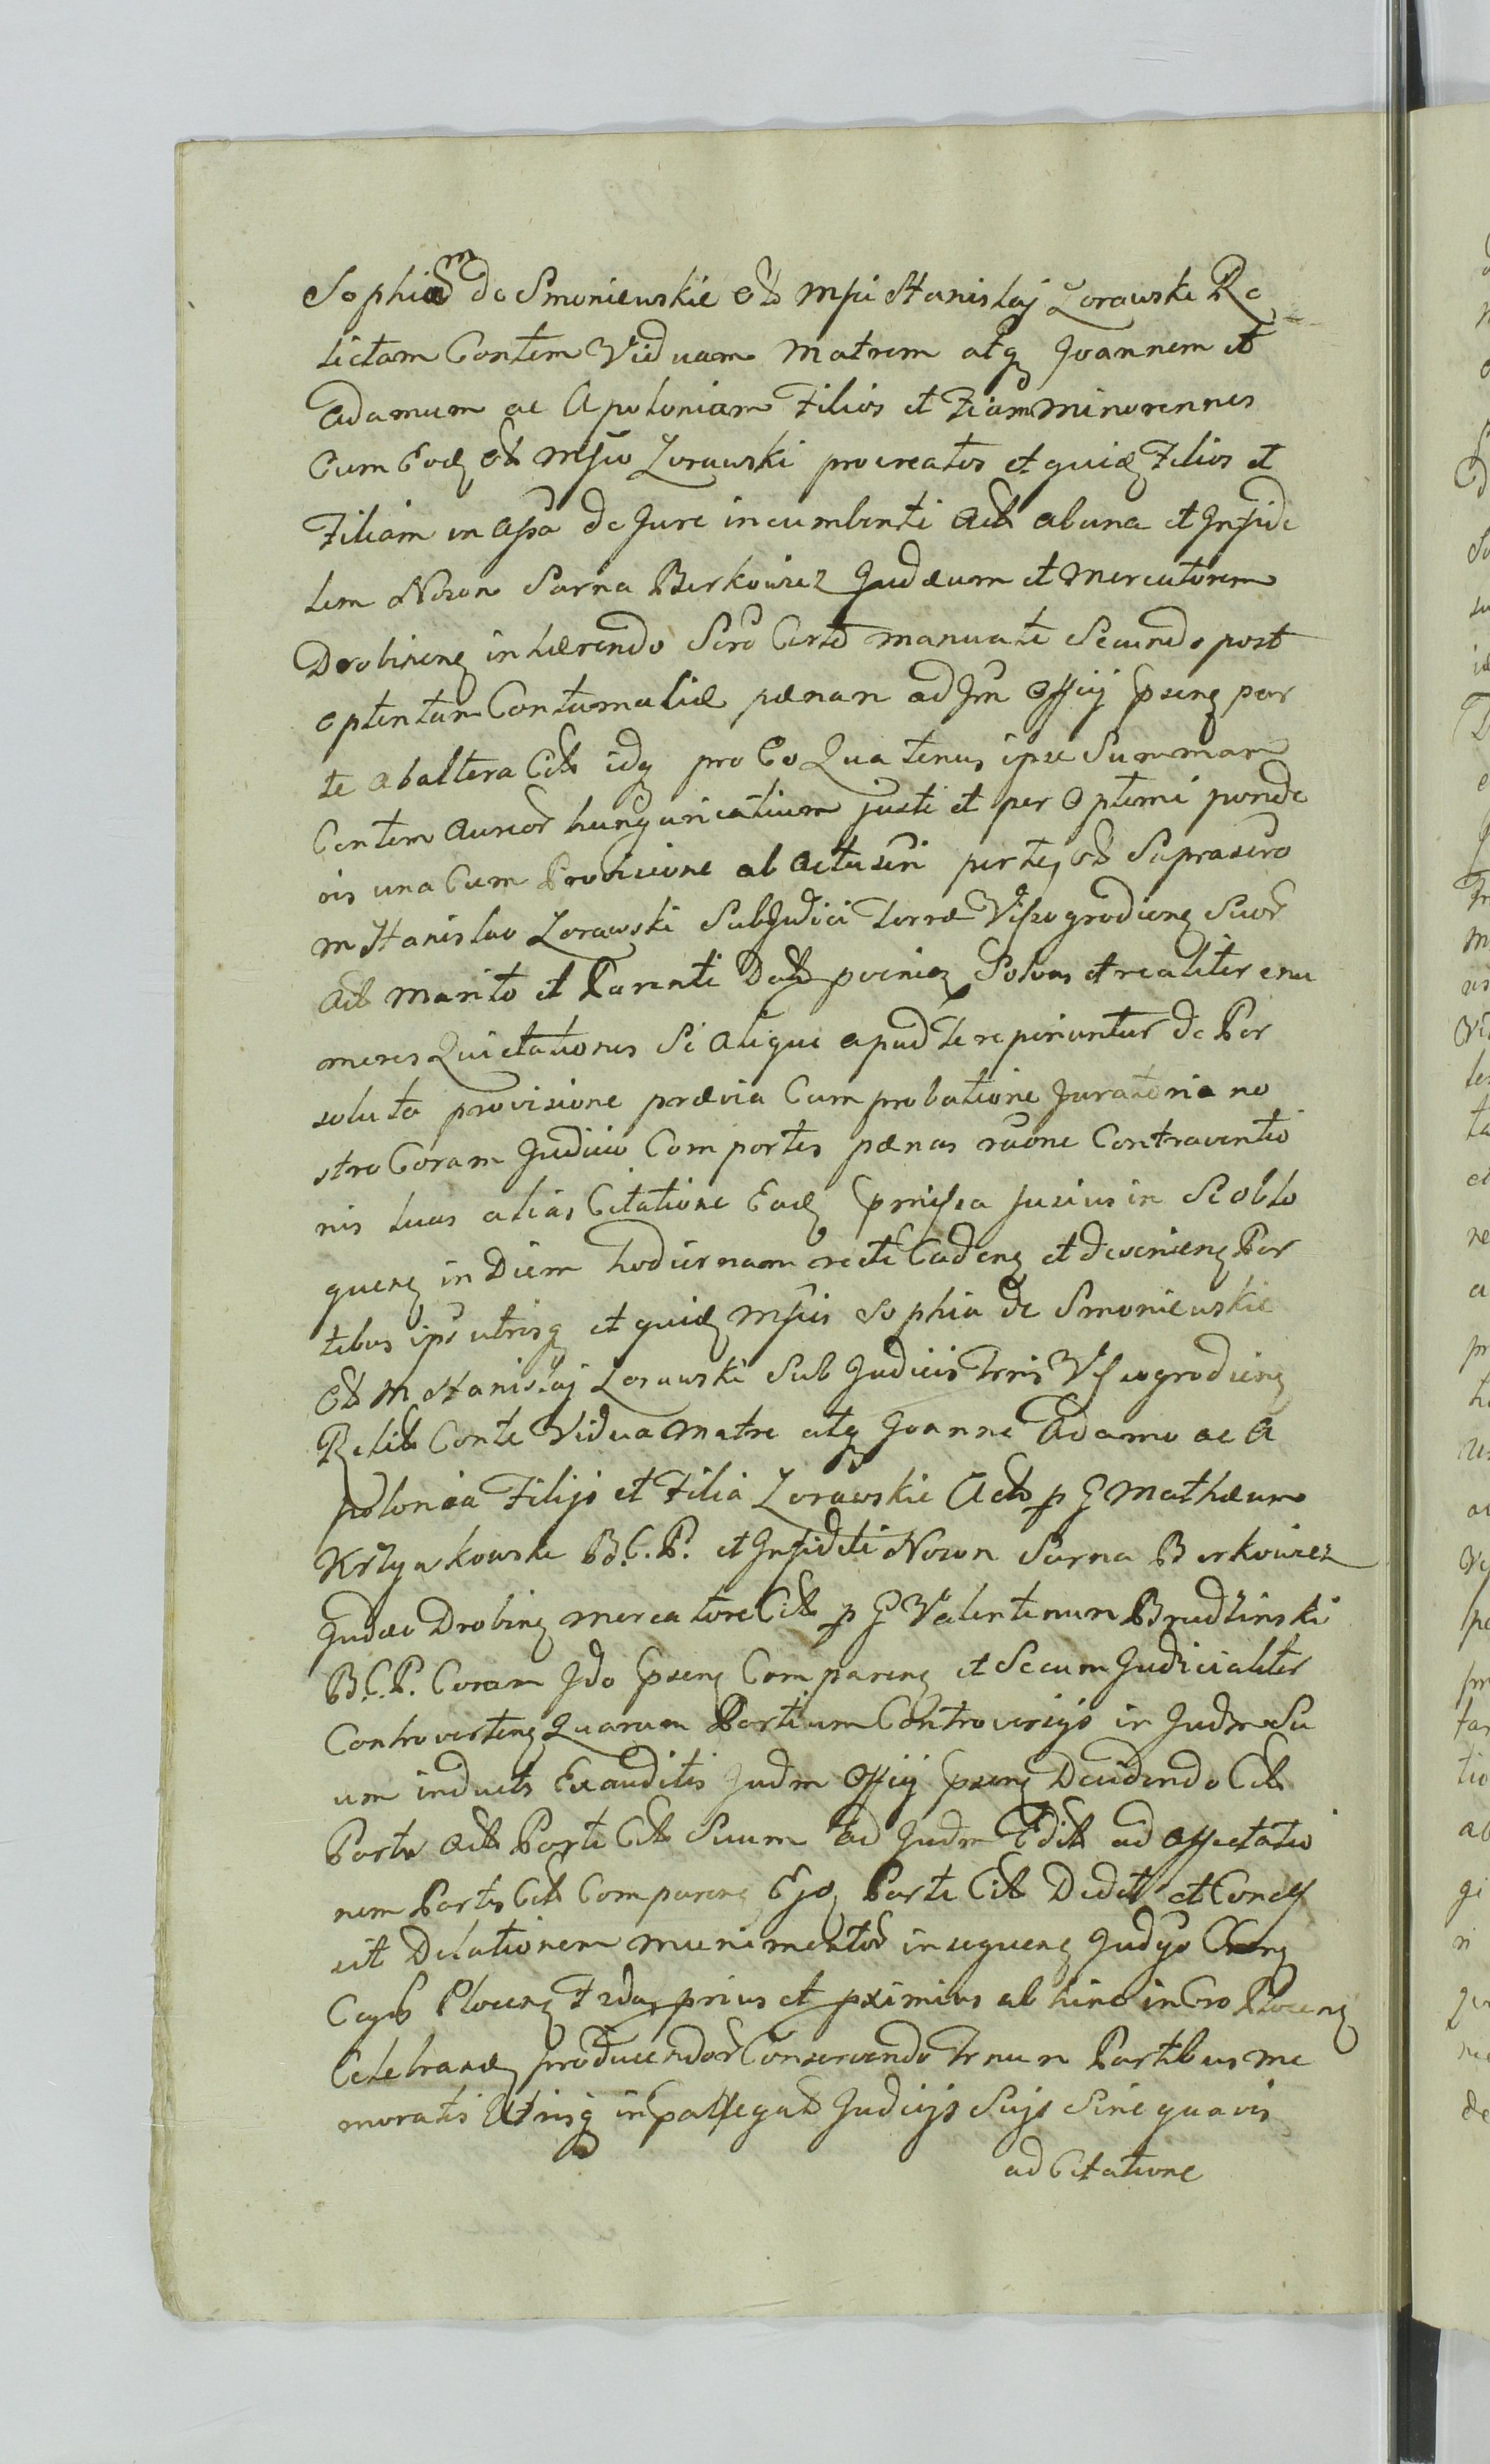 Sophiam de Smoniewskie Olt Mfci Stanislaj Zorawski Re
lictam Contem Viduam Matrem atq Joannem et
Adamum ac Apoloniam Filios et Fiam minorennes
Cum Eod olt Mfco Zorawski procreatos et quid Filios et
Filiam in assa de Jure incumbenti Act ab una et Infide
lem Noson Sarna Berkowicz Judæum et Mercatorem
Drobinen inhærendo Scro Certo manuali Secundo post
optentam Contumaliæ pænam ad Jm Officij prsens par
te ab altera Citt idq pro Eo Quatenus ipse Summam
Centem aureor hungaricalium justi et per Optimi ponde
ris una Cum Provisione ab actu seri per te olt Suprascro
M Stanislao Zorawski SubJudici Terræ Vissogrodien Suor
Act Marito et Parenti Datt provenien Solvas et realiter enu
meres Quietationes Si alique apud te reperiuntur de Per
soluta provisione prævia Comprobatione Juratoria no
stro Coram Judicio Comportes pænas raone Contraventio
nis luas alias Citatione Ead prmissa fusius in Se oblo
quen in Diem hodiernam recte Caden et devenien Par
tibus ipis utrisq et quid Mfcis Sophia de Smoniewskie
Olt M Stanislaj Zorawski Sub Judicis Trris Vissogrodien
Relict Conte Vidua Matre atq Joanne Adamo ac A
polonia Filijs et Filia Zorawskie Act p G Mathæum
Krzynkowski B.C.P. et Infideli Noson Sarna Berkowicz
Judæo Drobin mercatore Citt p G Valentinum Brudzinski
B.C.P. Coram Jdo prsen Comparen et Secum Judicialiter
Controverten Quarum Partium Controversijs in Judm Su
um inductis Exauditis Judm Officij prsens Decidendo Citt
Parte Act Parti Citt Suum ad Judm Edit ad affectatio
nem Partis Citt Comparen Ejd Parti Citt Dedit et Concess
it Dilationem munimentor in sequen Judijs
Cast Plocen Fdas prius et pximius ab hinc in Cro Plocen
Celebrand producendor Conservando Trnum Partibus me
moratis Utrisq in Judicijs Suis Sine quavis
ad Citatione